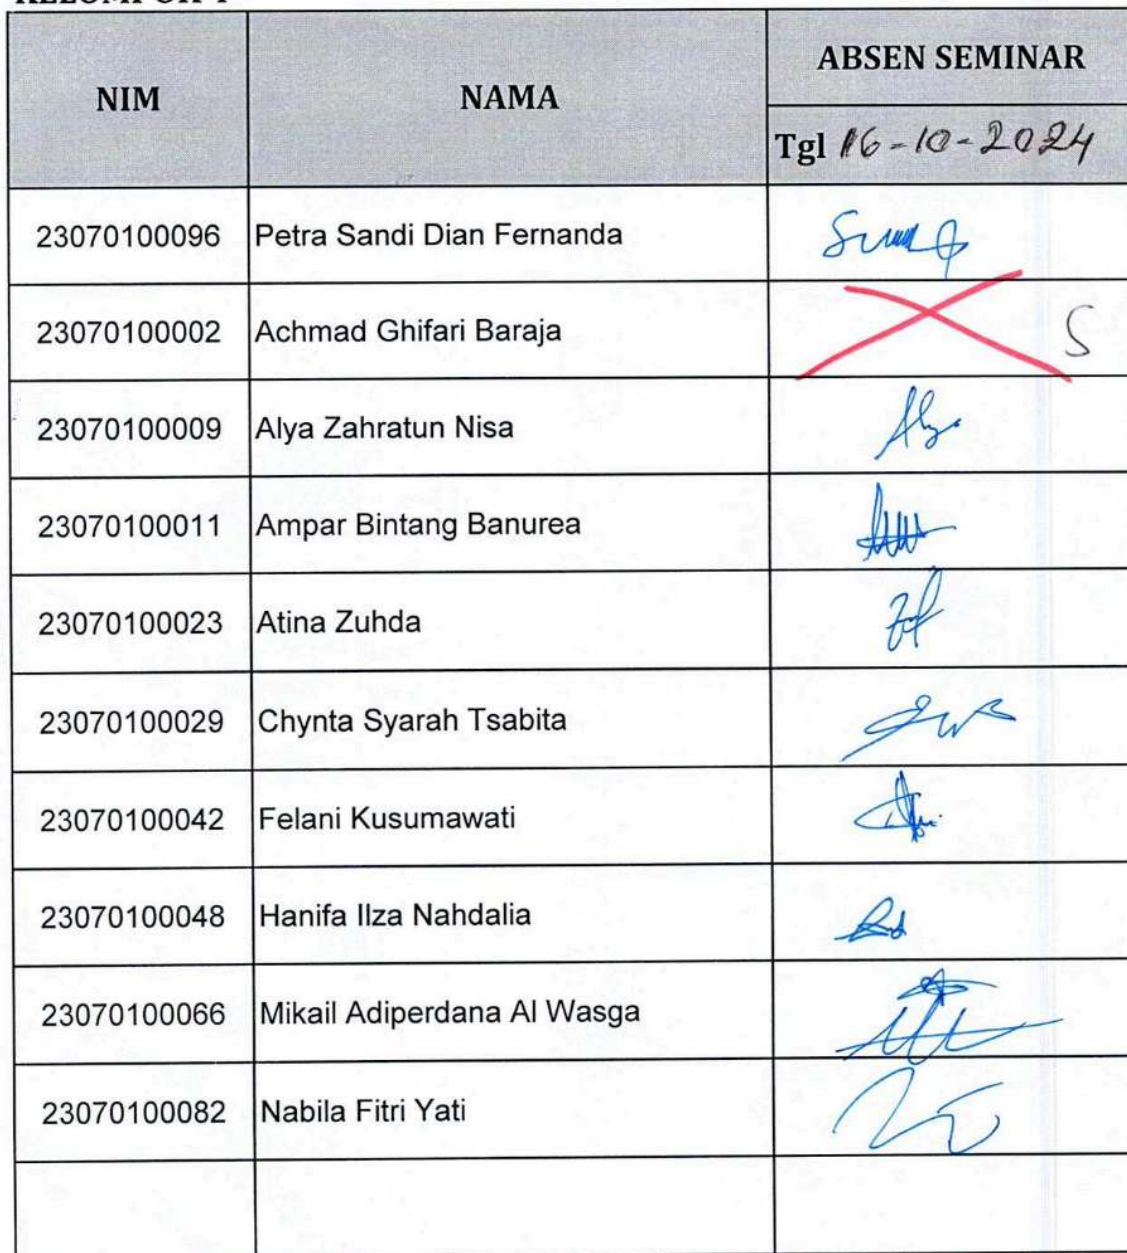 NIM NAMA ABSEN SEMINAR
Tgl 16-10-2024
23070100096 Petra Sandi Dian Fernanda
23070100002 Achmad Ghifari Baraja S
23070100009 Alya Zahratun Nisa
23070100011 Ampar Bintang Banurea
23070100023 Atina Zuhda
23070100029 Chynta Syarah Tsabita
23070100042 Felani Kusumawati
23070100048 Hanifa Ilza Nahdalia
23070100066 Mikail Adiperdana Al Wasga
23070100082 Nabila Fitri Yati